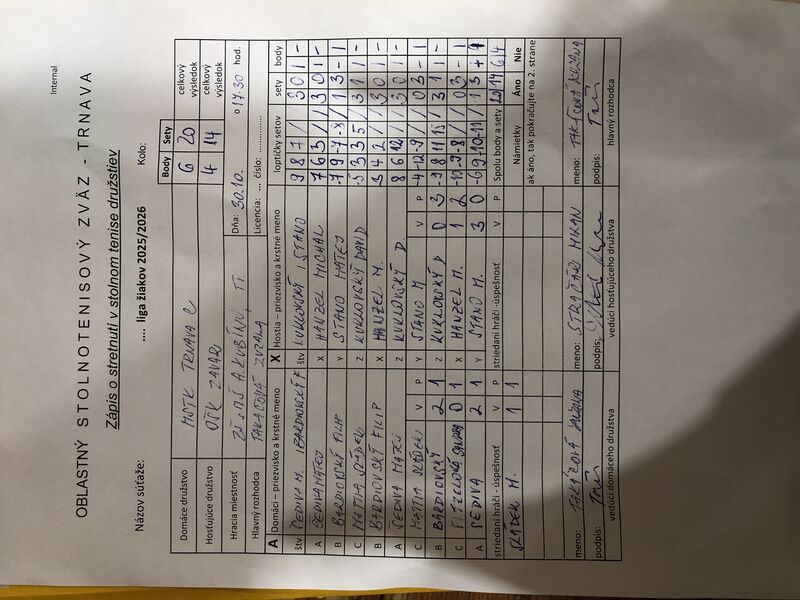 Internal
OBLASTNÝ STOLNOTENISOVÝ ZVÄZ - TRNAVA
Zápis o stretnutí v stolnom tenise družstiev
Názov súťaže: .... liga žiakov 2025/2026 Kolo:
Body Sety
Domáce družstvo MSTK TRNAVA C 6 20 celkový výsledok
Hosťujúce družstvo OŠK ZAVAR 4 14 celkový výsledok
Hracia miestnosť ZŠ s MŠ A. KUBÍNU TT Dňa: 30.10. o 17.30 hod.
Hlavný rozhodca TAKÁČOVÁ ZUZANA Licencia: ... číslo: ..............
A Domáci – priezvisko a krstné meno X Hostia – priezvisko a krstné meno loptičky setov sety body
štv ŠEDIVA M. BARDIOVSKÝ F štv KUKLOVSKÝ, STANO 9 8 7 / / 3 0 1 -
A ŠEDIVA MATEJ X HANZEL MICHAL 7 6 3 / / 3 0 1 -
B BARDIOVSKÝ FILIP Y STANO MATEJ 1 3 - 1
C MATIJA, SLÁDEK Z KUKLOVSKÝ DAVID -5 3 3 5 / 3 1 1 -
B BARDIOVSKÝ FILIP X HANZEL M. 3 4 2 / / 3 0 1 -
A ŠEDIVA MATEJ Z KUKLOVSKÝ D. 8 6 12 / / 3 0 1 -
C MATIJA SLÁDEK V P Y STANO M. V P -4 -12 -9 / / 0 3 - 1
B BARDIOVSKÝ 2 1 Z KUKLOVSKÝ D 0 3 -9 8 11 15 / 3 1 1 -
C 0 1 X HANZEL M. 1 2 -10 -9 -8 / / 0 3 - 1
A ŠEDIVA 2 1 Y STANO M. 3 0 -6 9 -10 -11 / 1 3 - 1
striedaní hráči - úspešnosť V P striedaní hráči - úspešnosť V P Spolu body a sety 20 14 6 4
SLÁDEK M. 1 1 Námietky Áno Nie
ak áno, tak pokračujte na 2. strane
meno: TAKÁČOVÁ ZUZANA meno: STRAČÁR MILAN meno: TAKÁČOVÁ ZUZANA
podpis: podpis: podpis:
vedúci domáceho družstva vedúci hosťujúceho družstva hlavný rozhodca